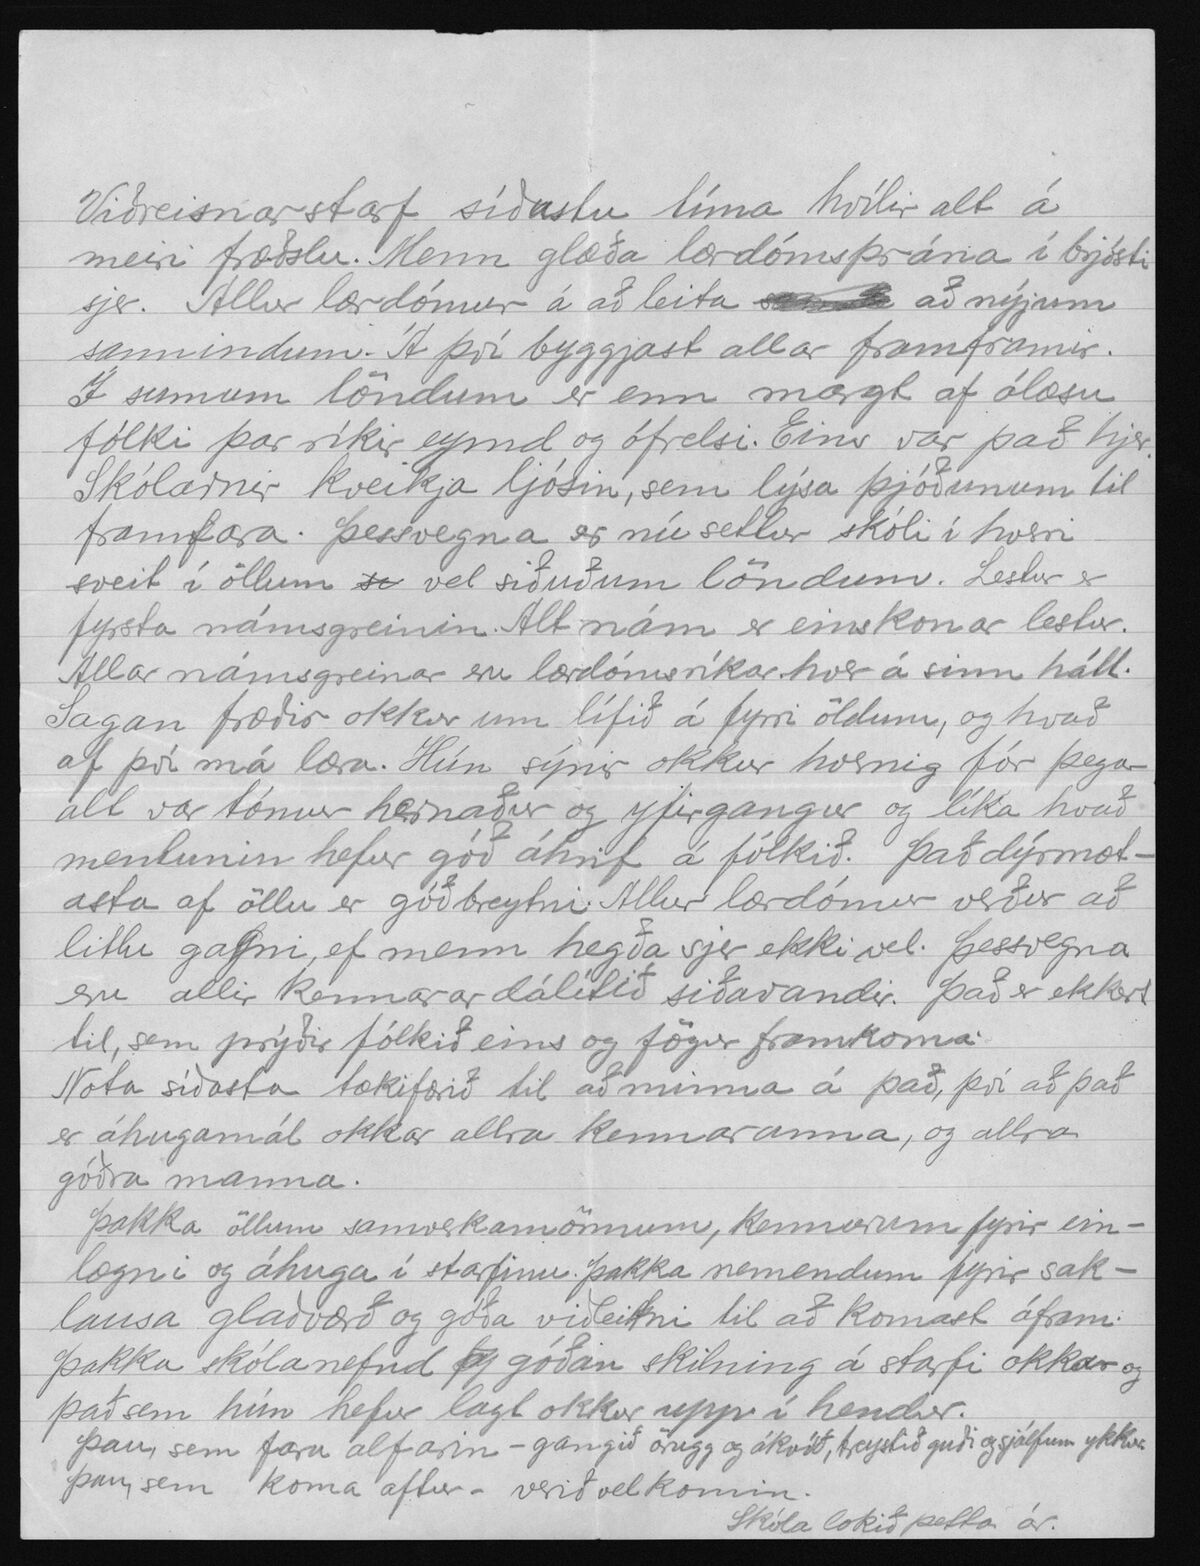 Viðreisnarstarf síðustu tíma hvílir alt á
meiri fræðslu. Menn glæða lærdómsþrána í brjósti
sjer. Allur lærdómur á að leita að nýjum
sannindum. Á því byggjast allar framfarnir.
Í sumum löndum er enn margt af ólæsu
fólki þar ríkir eymd og ófrelsi. Eins var það hjer.
Skólarnir kveikja ljósin, sem lýsa þjóðunum til
framfara. Þessvegna er nú settur skóli í hverri
sveit í öllum vel siðuðum löndum. Lestur er
fyrsta námsgreinin. Alt nám er einskonar lestur.
Allar námsgreinar eru lærdómsríkar hver á sinn hátt.
Sagan fræðir okkur um lífið á fyrri öldum, og hvað
af því má læra. Hún sýnir okkur hvernig fór þegar
alt var tómur hernaður og yfirgangur og líka hvað
mentunin hefur góð áhrif á fólkið. Það dýrmæt-
asta af öllu er góð breytni. Allur lærdómur verður að
litlu gagni, ef menn hegða sjer ekki vel. Þessvegna
eru allir kennarar dálítið siðavandir. Það er ekkert
til, sem prýðir fólkið eins og fögur framkoma.
Nota síðasta tækifærið til að minna á það, því að það
er áhugamál okkar allra kennaranna, og allra
góðra manna.
Þakka öllum samverkamönnum, kennurum fyrir ein-
lægni og áhuga í starfinu. Þakka nemendum fyrir sak-
lausa glaðværð og góða viðleitni til að komast áfram.
Þakka skólanefnd góðan skilning á starfi okkar og
það sem hún hefur lagt okkur upp í hendur.
Þau, sem fara alfarin - gangið örugg og ákveðið, treystið guði og sjálfum ykkur
Þau, sem koma aftur - verið velkomin.
Skóla lokið þetta ár.